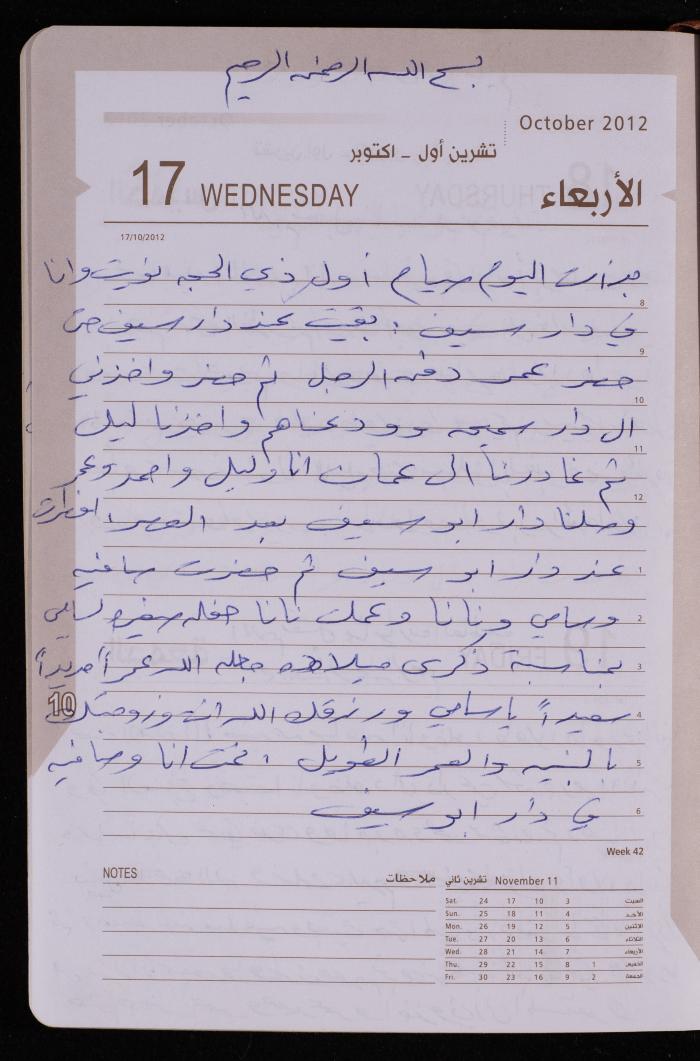 بسم الله الرحمن الرحيم
October 2012
تشرين أول - اكتوبر
17 WEDNESDAY الأربعاء
17/10/2012
بدأت اليوم صيام أول ذي الحجه نويت وانا
8
في دار سيف، بقيت عند دار سيف حتى
9
حضر عمر الرجل ثم حضر واخذني
10
ال دار سميحه وودعناهم واخذنا ليل
11
ثم غادرنا الى عمان انا وليل واحمد وعمر
12
وصلنا دار ابو سيف بعد العصر افطرت
عند دار ابو سيف ثم حضرت صافيه
1
وسامي ونانا وعملت نانا حفله صغيره لسامي
2
بمناسبة ذكرى ميلاده جعله الله عمراً مديداً
3
سعيداً يا سامي ورزقك الله انت وزوجتك
4
10
بالبنيه والعمر الطويل، نمت انا وصافيه
5
في دار ابو سيف
6
Week 42
NOTES ملاحظات
November 11 تشرين ثاني
Sat. 24 17 10 3 السبت
Sun. 25 18 11 4 الأحد
Mon. 26 19 12 5 الاثنين
Tue. 27 20 13 6 الثلاثاء
Wed. 28 21 14 7 الأربعاء
Thu. 29 22 15 8 1 الخميس
Fri. 30 23 16 9 2 الجمعة